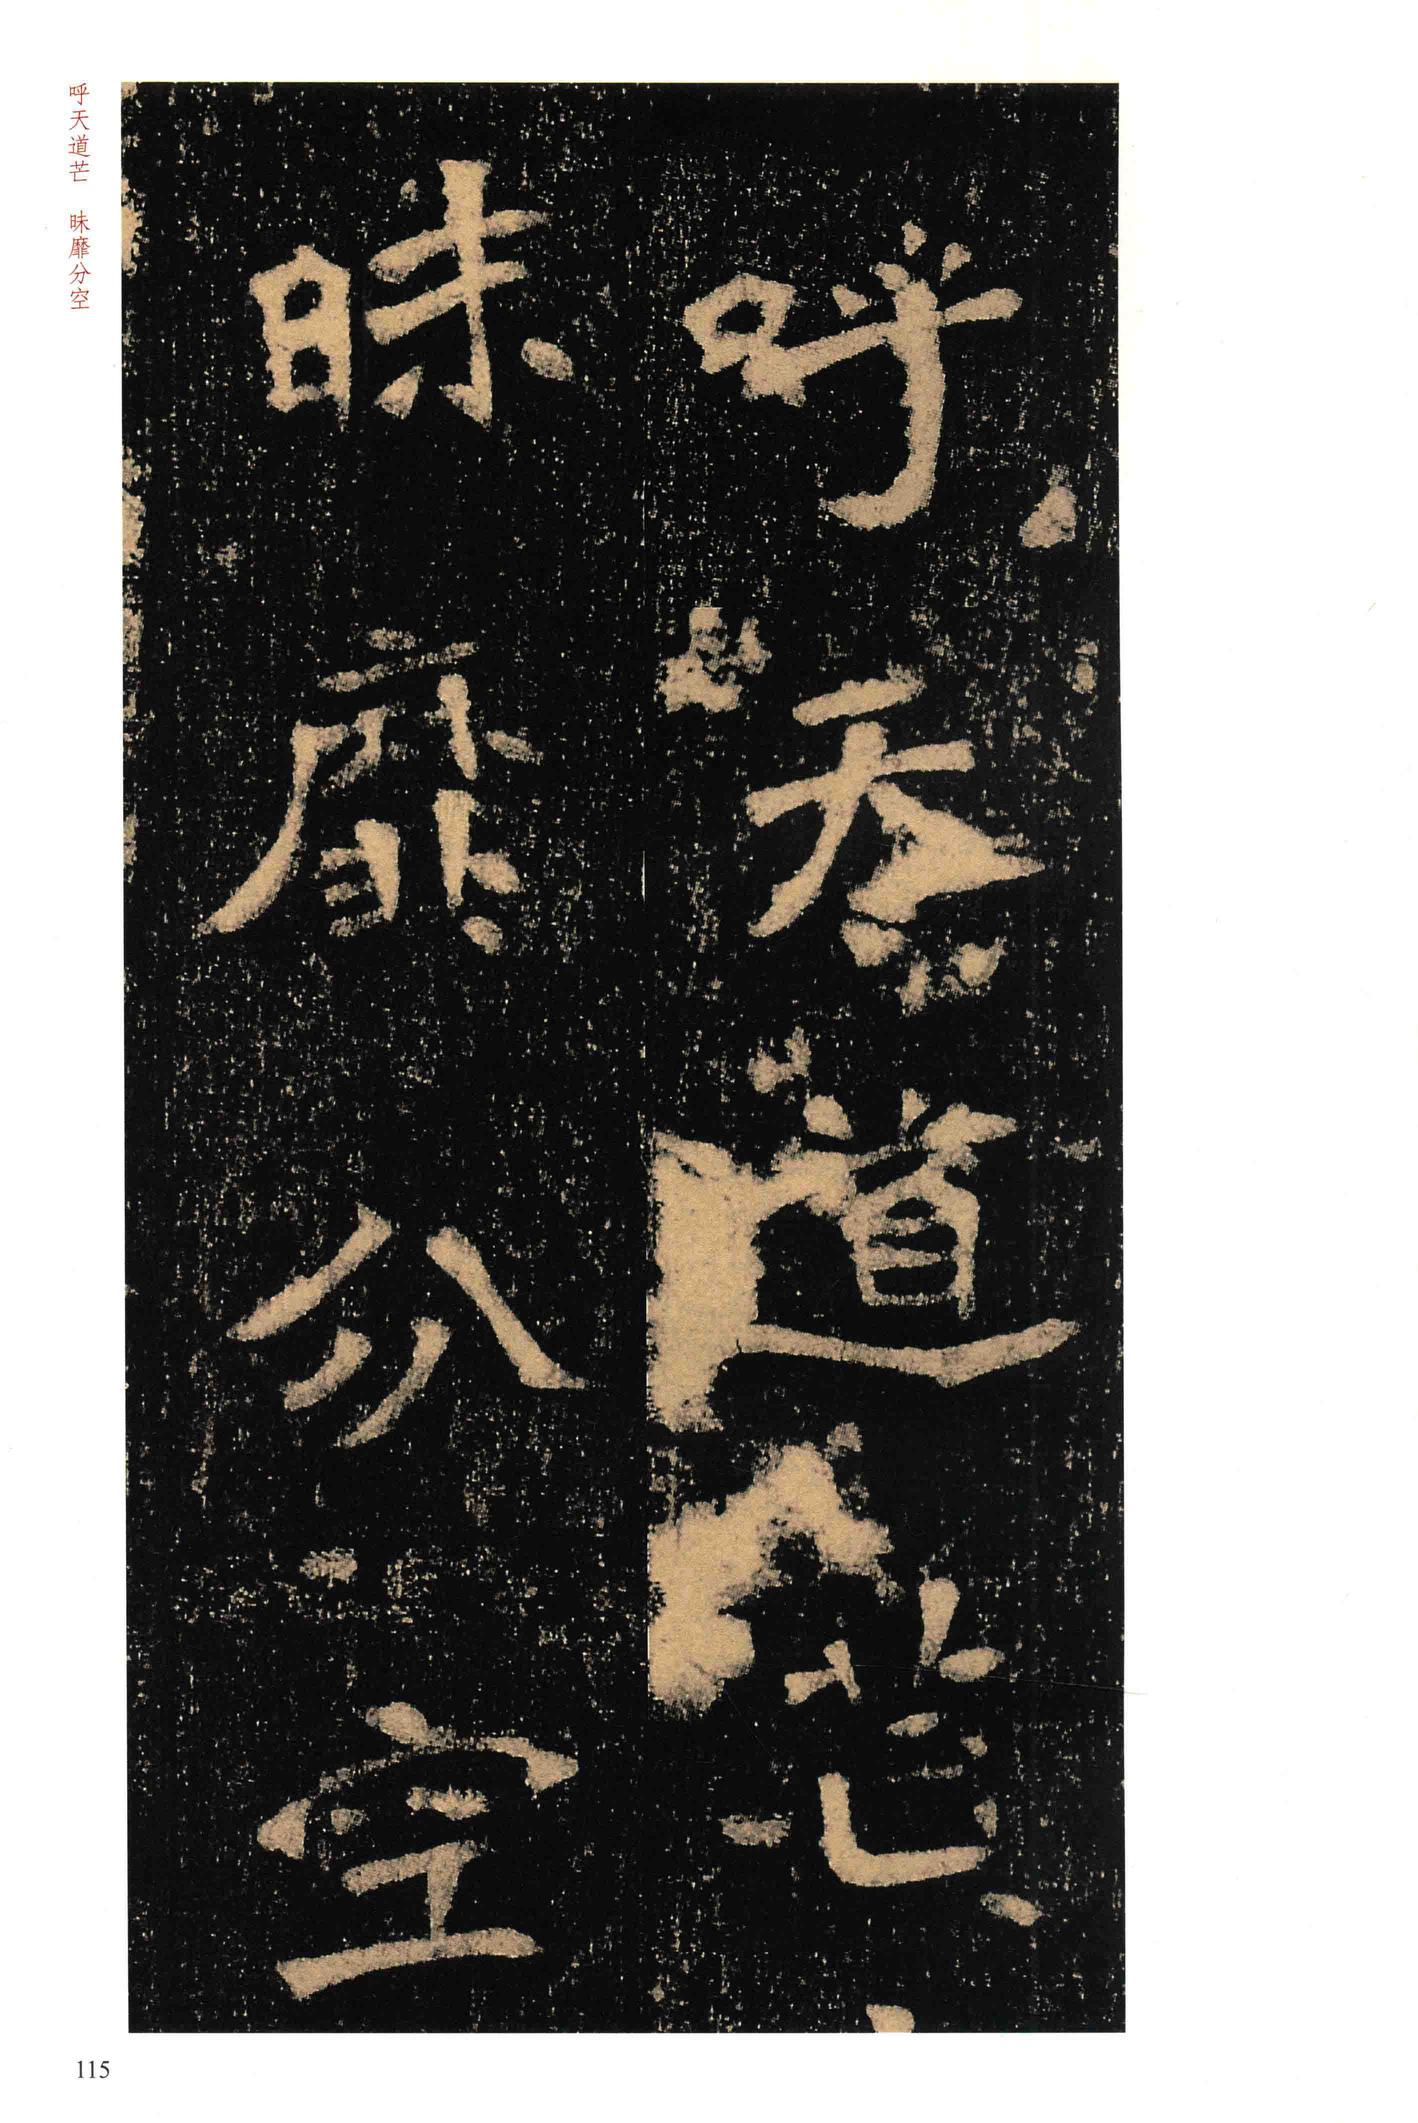 呼天道芒
昧靡分空
呼天道芒 昧靡分空
115